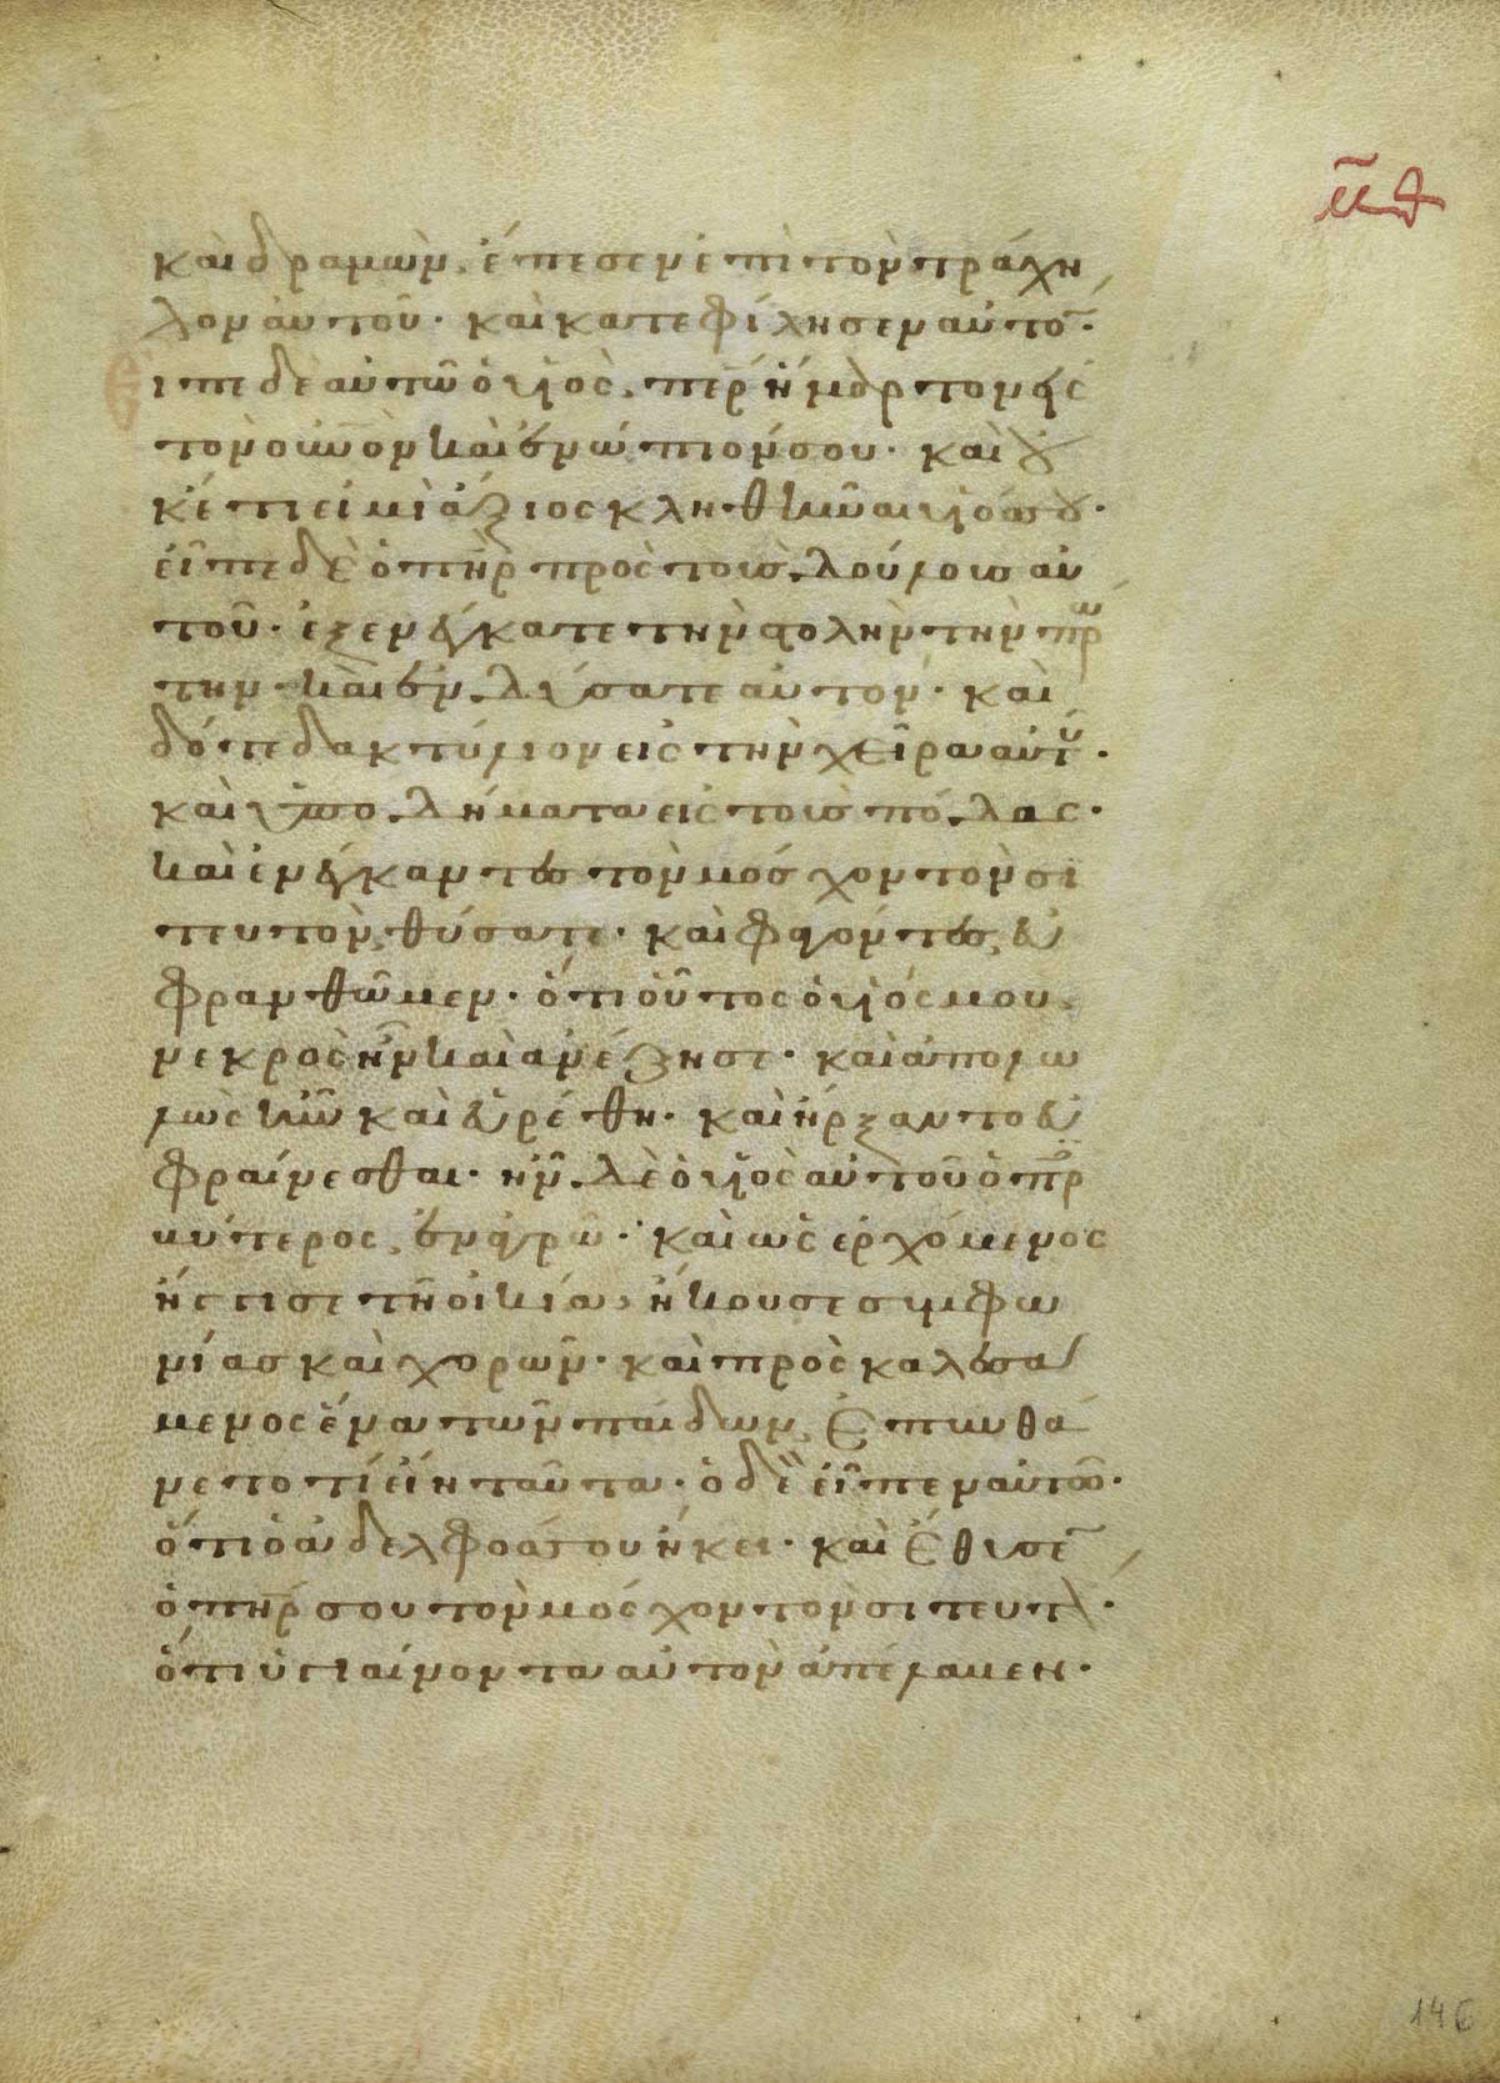 μθ
καὶ δραμὼν, ἔπεσεν ἐπὶ τὸν τράχη
λον αυτοῦ· καὶ κατεφίλησεν αὐτο̅·
Εἶπε δὲ αὐτῶ ὁ υἱὸς, περ ἥμαρτον εἰς
τὸν οὐνὸν καὶ ἐνώπιόν σου· καὶ οὐ
κέτι εἰμὶ ἄξιος κληθῆναι υἱός σου·
εἶπε δὲ ὁ πηρ πρὸς τοὺς δούλους αὐ
τοῦ· ἐξενέγκατε τὴν στολὴν τὴν πρώ
την· καὶ ἐνδύσατε αὐτόν· καὶ
δότε δακτύλιον εἰς τὴν χεῖρα αὐτοῦ·
καὶ ὑποδήματα εἰς τοὺς πόδας·
καὶ ἐνέγκαντες τὸν μόσχον τὸν σι
τευτὸν, θύσατε· καὶ φαγόντες, εὐ
φρανθῶμεν· ὅτι οὗτος ὁ υἱός μου,
νεκρὸς ἦν καὶ ἀνέζησε· καὶ ἀπολω
λὼς ἦν καὶ εὑρέθη· καὶ ἤρξαντο εὐ
φραίνεσθαι· ἦν δὲ ὁ υἱὸς αὐτοῦ ὁ πρεσ
βύτερος, ἐν ἀγρῶ· καὶ ὡς ἐρχόμενος
ἤγγισε τῆ οἰκία, ἤκουσε συμφω
νίας καὶ χορῶν· καὶ προσκαλεσά
μενος ἕνα τῶν παίδων, ἐπυνθά
νετο τί εἴη ταῦτα· ὁ δὲ εἶπεν αὐτῶ·
ὅτι ὁ ἀδελφός σου ἥκει· καὶ ἔθυσε̅
ὁ πηρ σου τὸν μόσχον τὸν σιτευτὸν·
ὅτι ὑγιαίνοντα αὐτὸν ἀπέλαβεν·
146